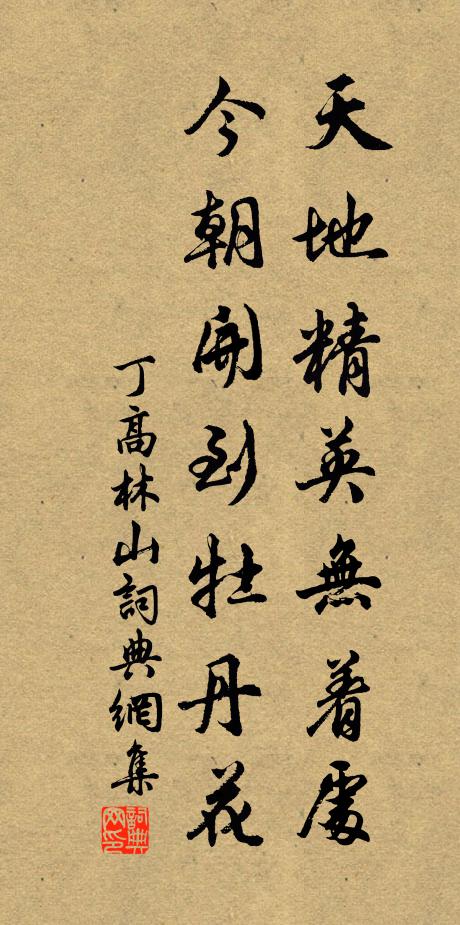 天地精英無着處
今朝開到牡丹花
丁高林山詞典網集
詞典网印